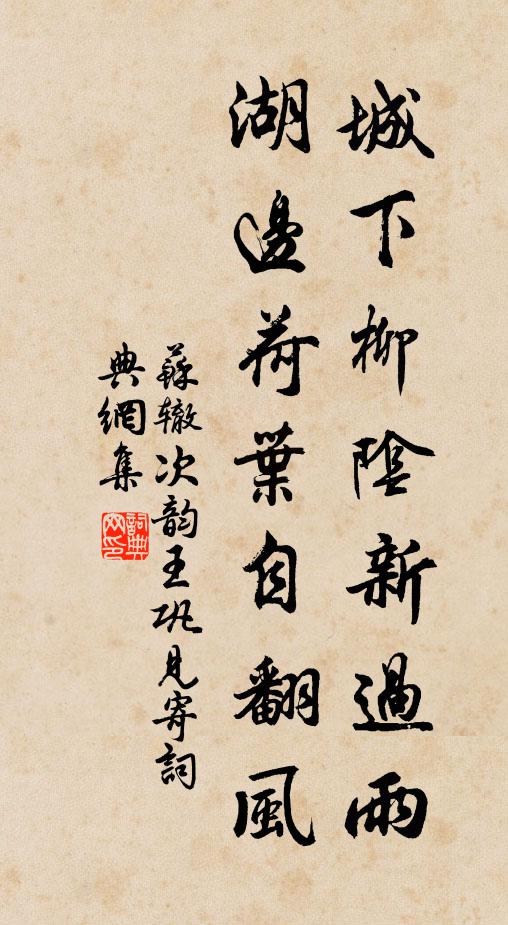 城下柳陰新過雨
湖邊荷葉自翻風
蘇辙次韵王巩見寄詞
典網集
詞典
网印